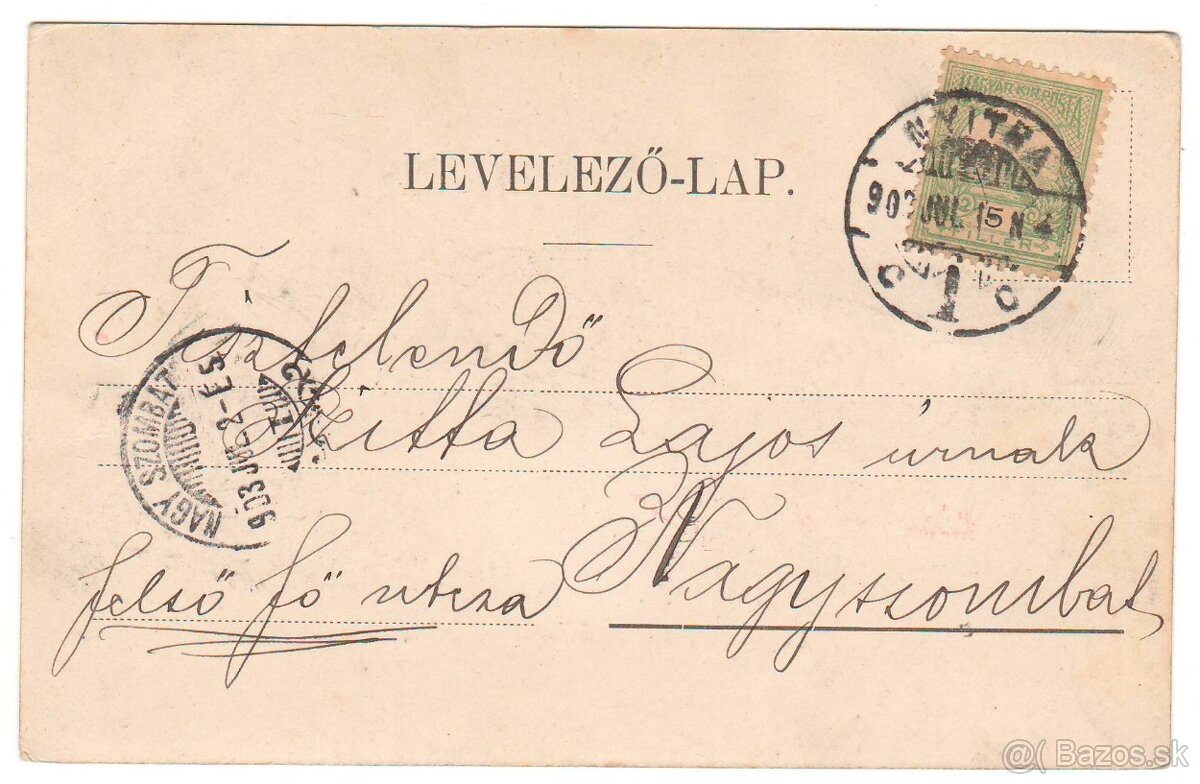 MAGYAR KIR. POSTA
NYITRA
903 JUL 15 N 4
5
FILLÉR
1
LEVELEZŐ-LAP.
Tisztelendő
Zitta Lajos úrnak
NAGY SZOMBAT
903 JUL
felső fő utcza
Nagyszombat
@( Bazos.sk